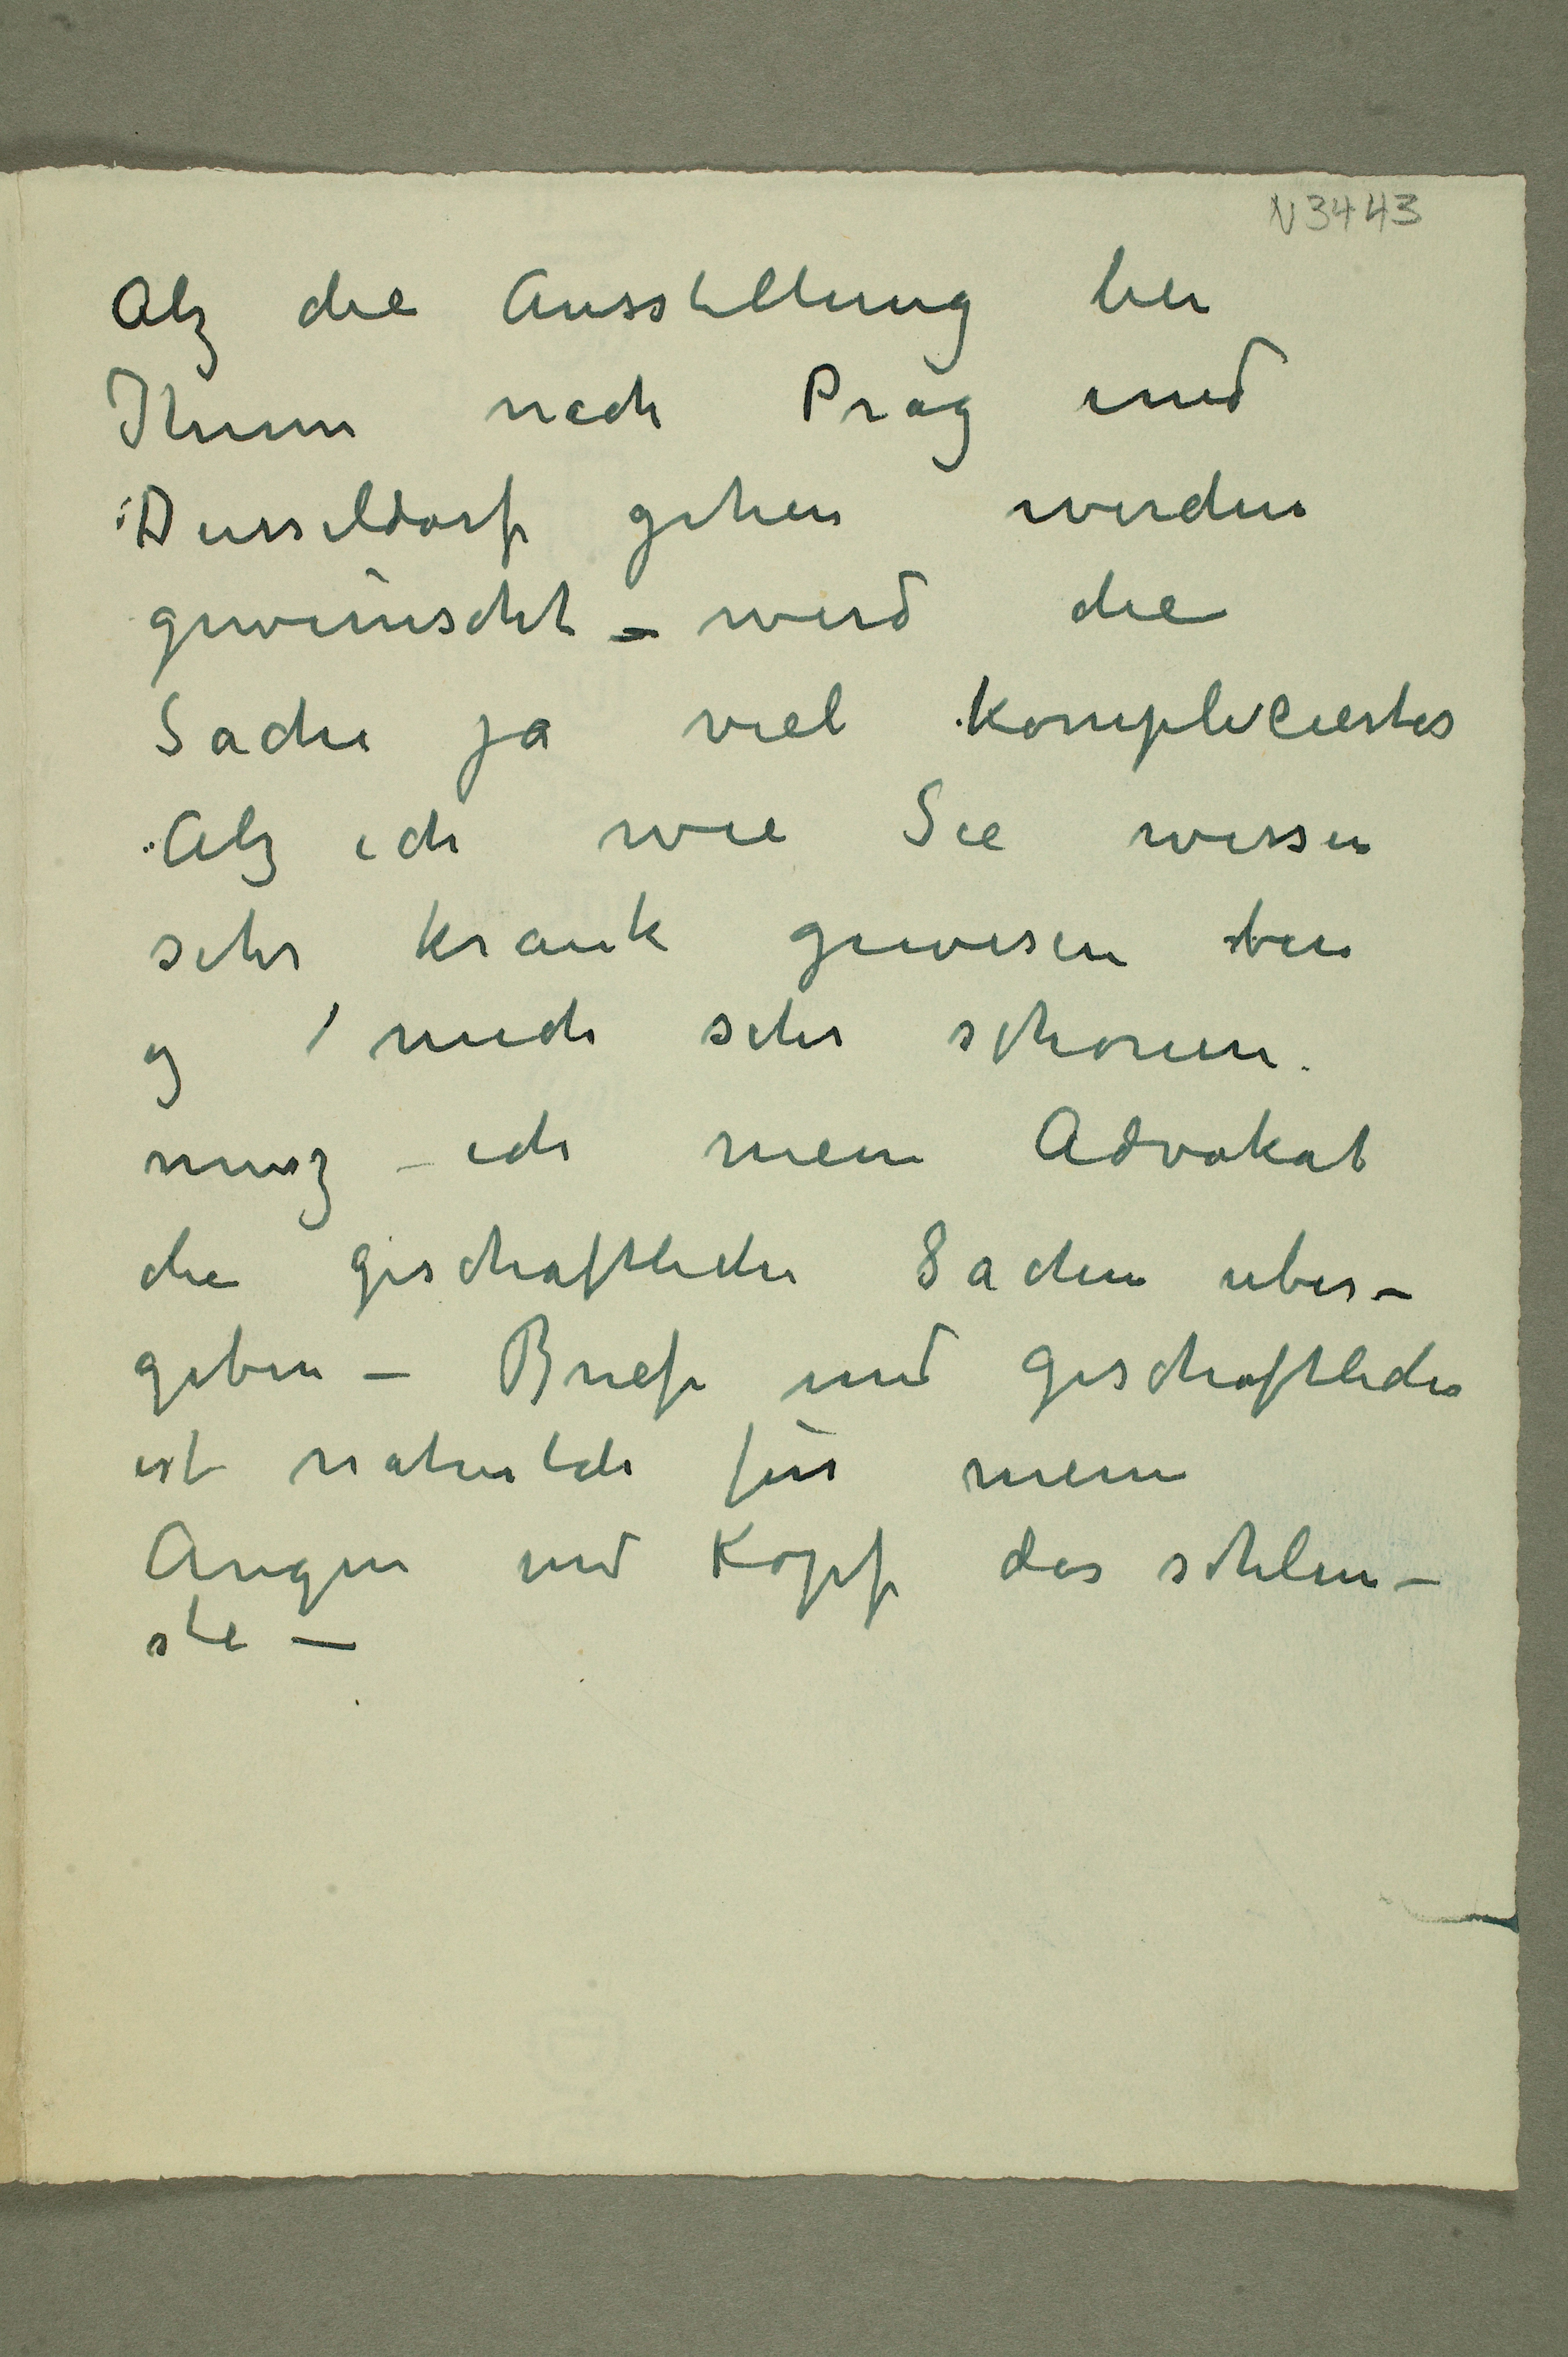 N 3443
Alz die Ausstellung bei
Ihnen nach Prag und
Dusseldorf gehen werden
gewünscht – wird die
Sache ja viel komplicierter
Alz ich wie Sie wissen
sehr krank gewesen bin
og mich sehr schonen.
musz – ich mein Advokat
die geschaftliche Sachen uber–
geben – Briefe und geschaftliches
ist naturlich für meine
Augen und Kopf das schlim–
ste —